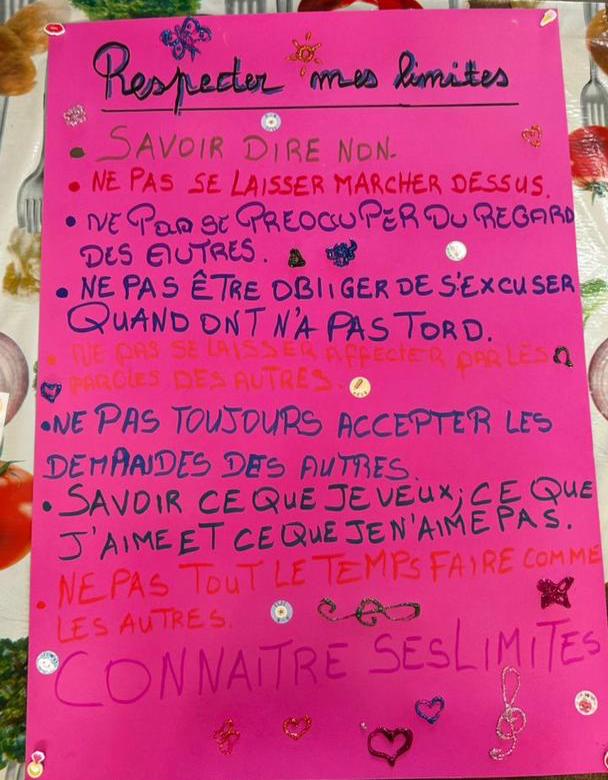 Respecter mes limites
• SAVOIR DIRE NON.
• NE PAS SE LAISSER MARCHER DESSUS.
• NE PAS SE PREOCUPER DU REGARD
DES AUTRES.
• NE PAS ÊTRE OBLIGER DE S'EXCUSER
QUAND ONT N'A PAS TORD.
• NE PAS SE LAISSER AFFECTER PAR LES
PAROLES DES AUTRES.
• NE PAS TOUJOURS ACCEPTER LES
DEMANDES DES AUTRES.
• SAVOIR CE QUE JE VEUX; CE QUE
J'AIME ET CE QUE JE N'AIME PAS.
• NE PAS TOUT LE TEMPS FAIRE COMME
LES AUTRES.
CONNAITRE SES LIMITES